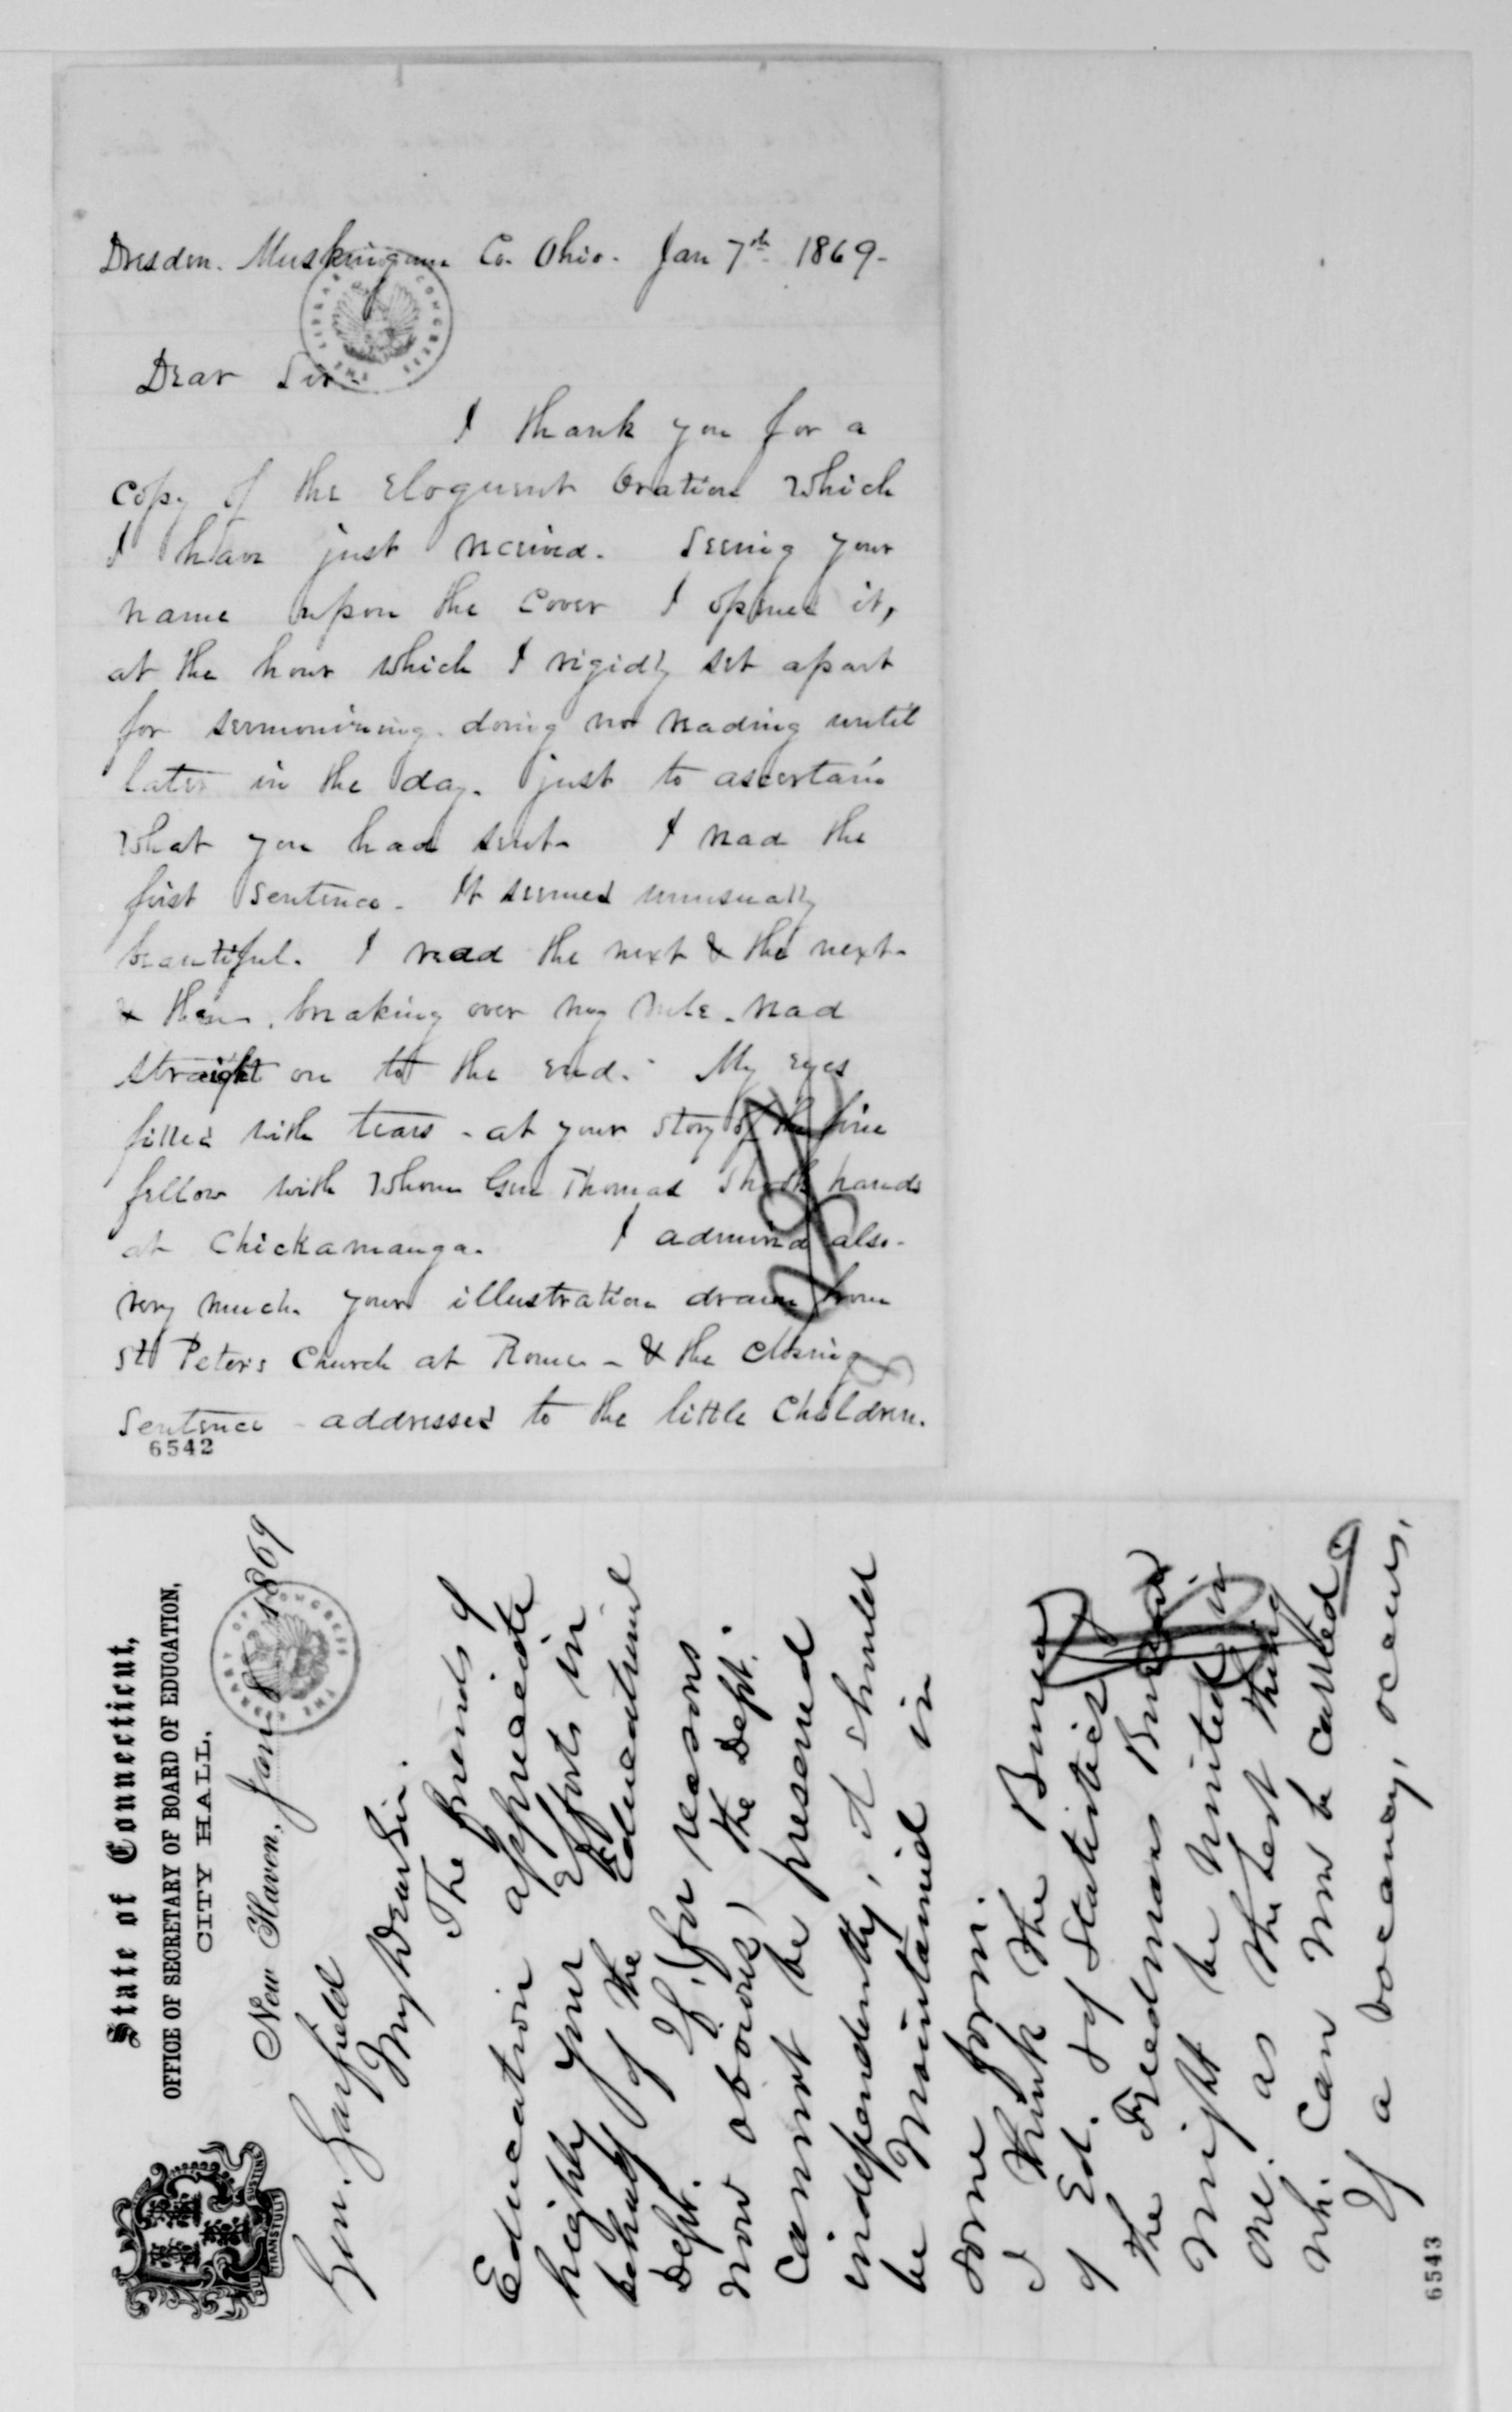 Dresden. Muskingum Co. Ohio. Jan 7th 1869.
THE LIBRARY OF CONGRESS
Dear Sir.
I thank you for a
copy of the eloquent Oration which
I have just received. Seeing your
name upon the cover I opened it,
at the hour which I rigidly set apart
for sermonizing. doing no reading until
later in the day. just to ascertain
what you had sent. I read the
first sentence. It seemed unusually
beautiful. I read the next & the next.
& then, breaking over my rule. read
straight on to the end. My eyes
filled with tears - at your story of the fine
fellow with whom Gen Thomas shook hands
at Chickamauga. I admired also.
very much. your illustration drawn from
St Peter's Church at Rome - & the closing
sentence - addressed to the little children.
6542
State of Connecticut,
OFFICE OF SECRETARY OF BOARD OF EDUCATION,
CITY HALL.
QUI TRANSTULIT SUSTINET
New Haven, Jan 8 1869
THE LIBRARY OF CONGRESS
Gen. Garfield
My Dear Sir.
The friends of
Education appreciate
highly your Efforts in
behalf of the Educational
Dept. If, (for reasons
now obvious) the Dept.
cannot be preserved
independently, it should
be maintained in
some form.
I think the Bureau
of Ed. & of Statistics &
the Freedmans Bureau
might be united in
one. as the best thing
wh. can now be carried.
If a vacancy, occurs,
6543